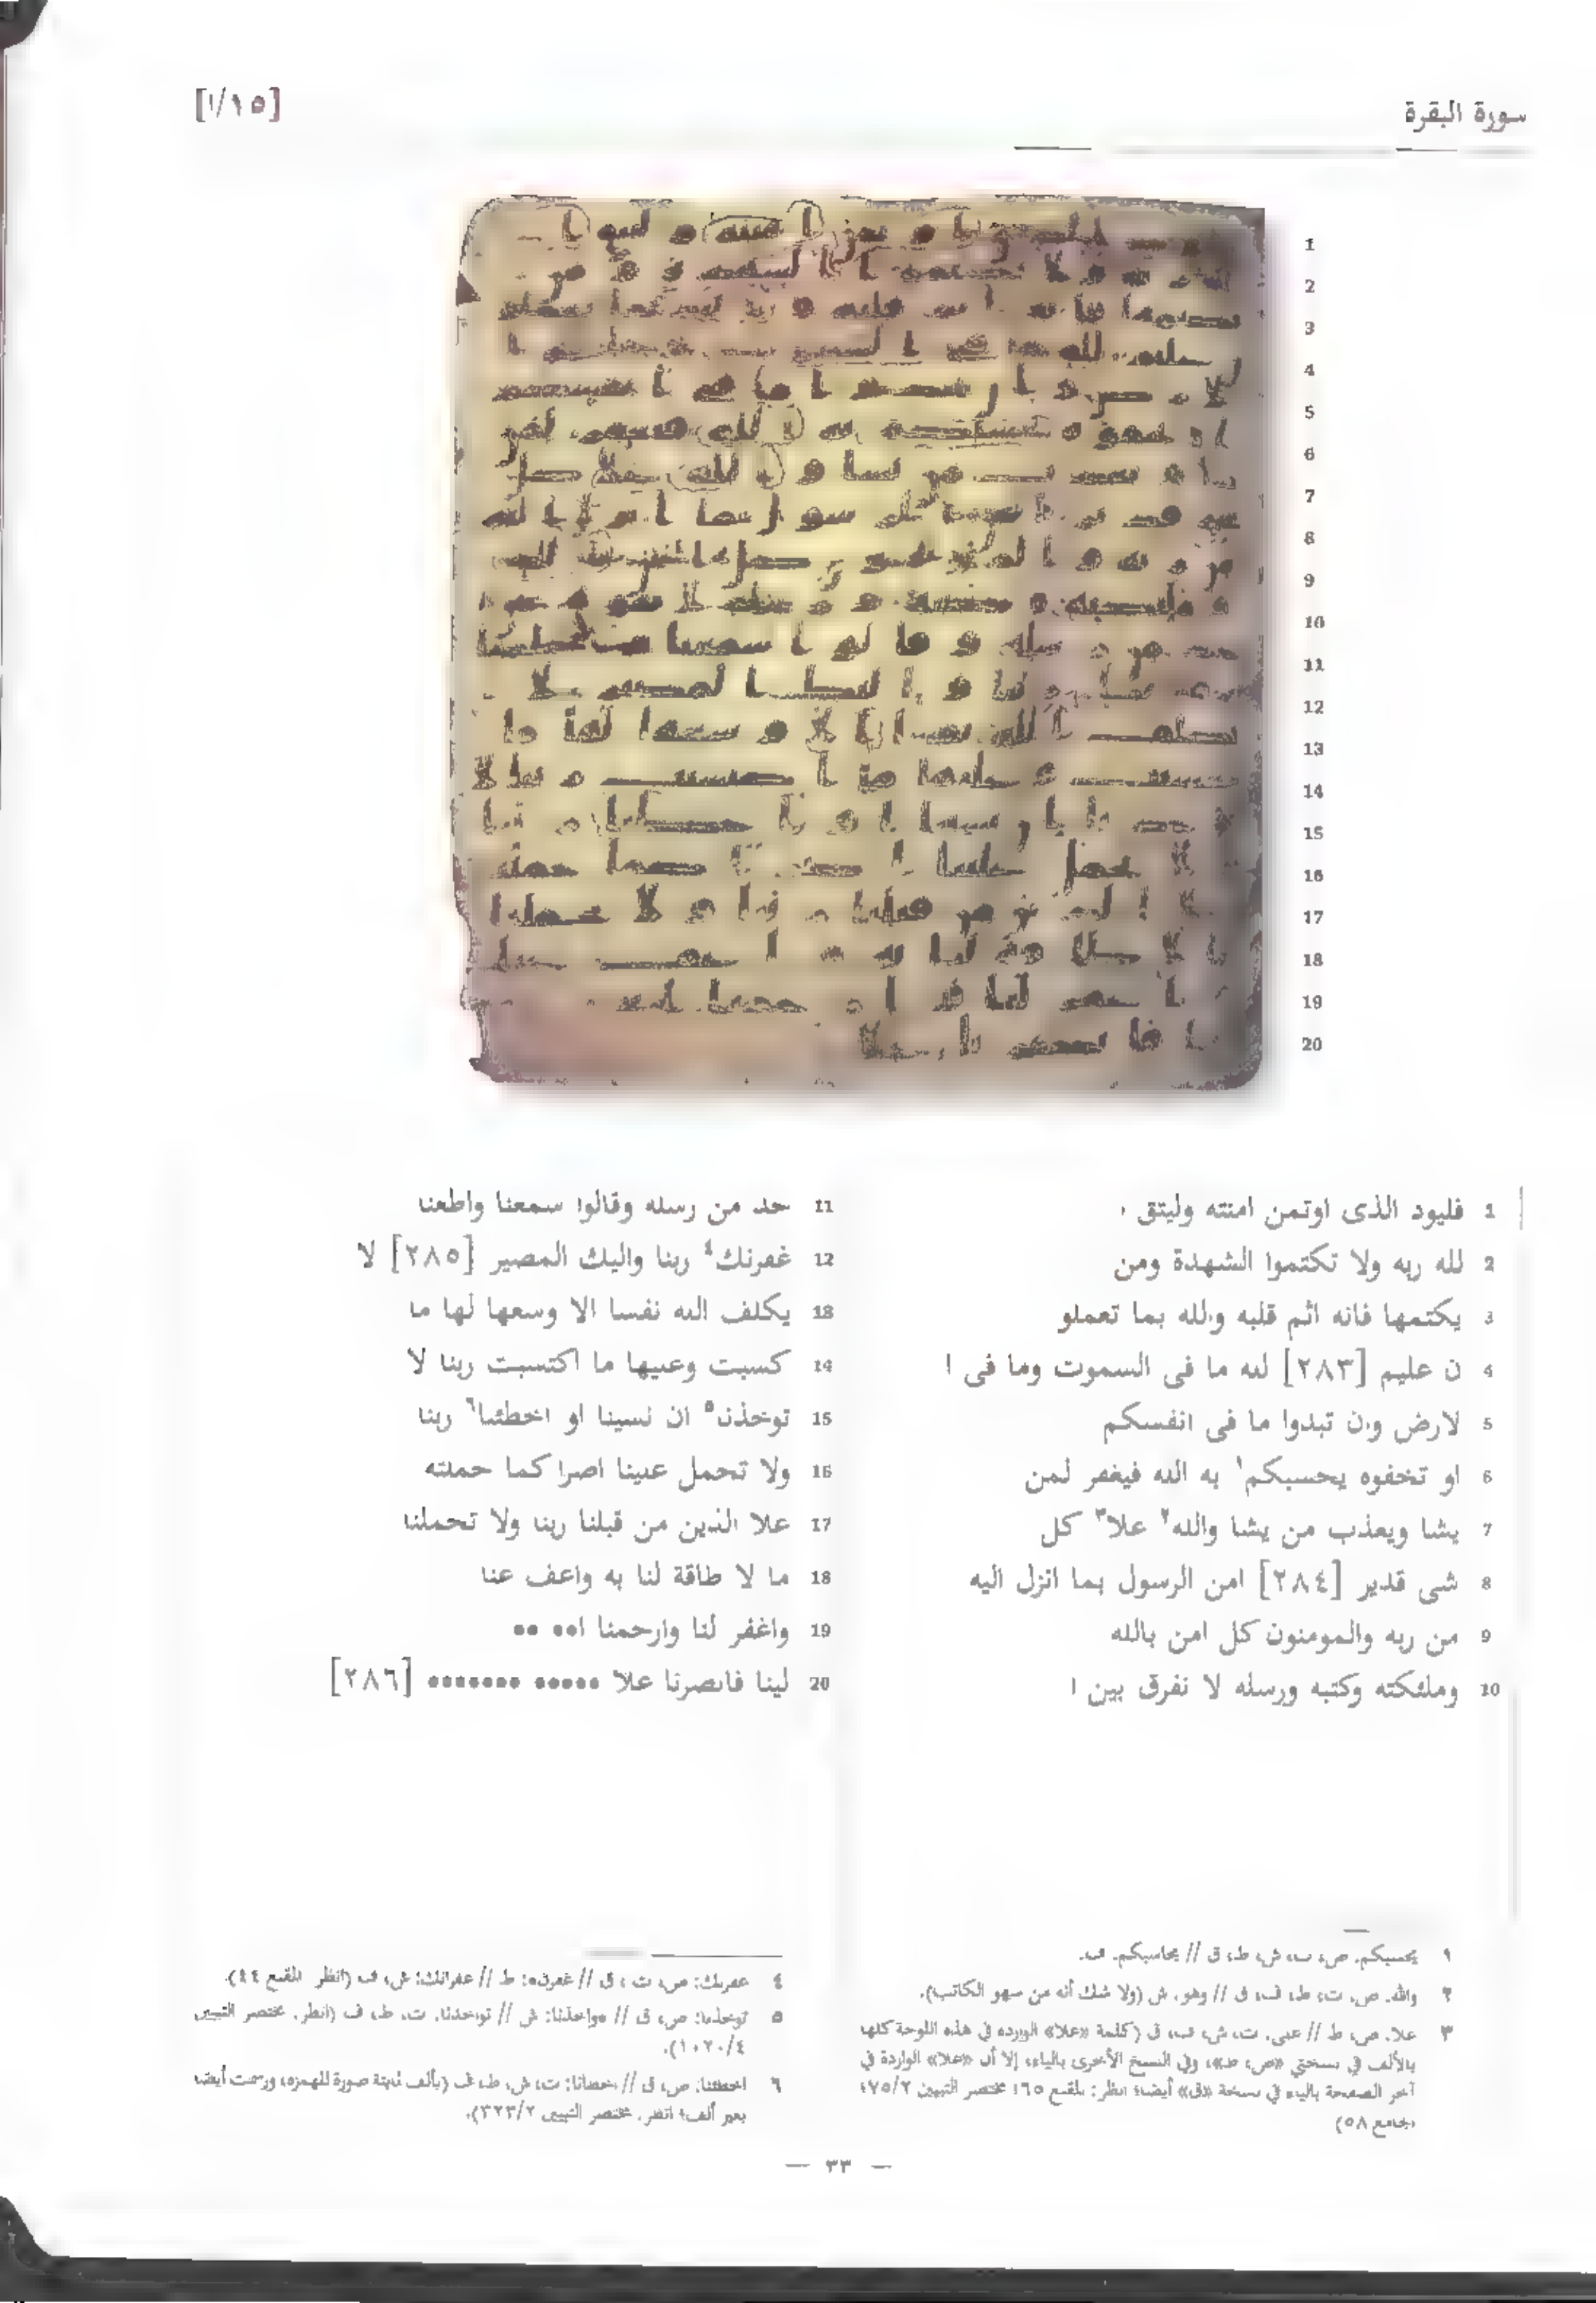 سورة البقرة
[١٥/ا]
1
2
3
4
5
6
7
8
9
10
11
12
13
14
15
16
17
18
19
20
1 فليود الذى اوتمن امنته وليتق ا
2 لله ربه ولا تكتموا الشهدة ومن
3 يكتمها فانه اثم قلبه والله بما تعملو
4 ن عليم [٢٨٣] لله ما فى السموت وما فى ا
5 لارض وان تبدوا ما فى انفسكم
6 او تخفوه يحسبكم١ به الله فيغفر لمن
7 يشا ويعذب من يشا والله٢ علا٣ كل
8 شى قدير [٢٨٤] امن الرسول بما انزل اليه
9 من ربه والمومنون كل امن بالله
10 وملئكته وكتبه ورسله لا نفرق بين ا
11 حد من رسله وقالوا سمعنا واطعنا
12 غفرنك٤ ربنا واليك المصير [٢٨٥] لا
13 يكلف الله نفسا الا وسعها لها ما
14 كسبت وعليها ما اكتسبت ربنا لا
15 توخذنا٥ ان نسينا او اخطئنا٦ ربنا
16 ولا تحمل علينا اصرا كما حملته
17 علا الذين من قبلنا ربنا ولا تحملنا
18 ما لا طاقة لنا به واعف عنا
19 واغفر لنا وارحمنا ا•• ••
20 لينا فانصرنا علا ••••• ••••••• [٢٨٦]
١ يحسبكم: ص، ت، ش، ط، ق // يحاسبكم: ف.
٢ والله: ص، ت، ط، ف، ق // وهو: ش (ولا شك أنه من سهو الكاتب).
٣ علا: ص، ط // على: ت، ش، ف، ق (كلمة «علا» الواردة في هذه اللوحة كلها
بالألف في نسختي «ص، ط»، وفي النسخ الأخرى بالياء، إلا أن «علا» الواردة في
آخر الصفحة بالياء في نسخة «ق» أيضا؛ انظر: المقنع ٦٥؛ مختصر التبيين ٧٥/٢؛
الجامع ٥٨)
٤ غفرنك: ص، ت، ق // غفرنه: ط // غفرانك: ش، ف (انظر: المقنع ٤٤).
٥ توخذنا: ص، ق // مواخذنا: ش // تواخذنا: ت، ط، ف (انظر: مختصر التبيين
١٠٢٠/٤).
٦ اخطئنا: ص، ق // اخطانا: ت، ش، ط، ف (بألف ثابتة صورة للهمزة، ورسمت أيضا
بغير ألف؛ انظر: مختصر التبيين ٣٢٣/٢).
— ٣٣ —